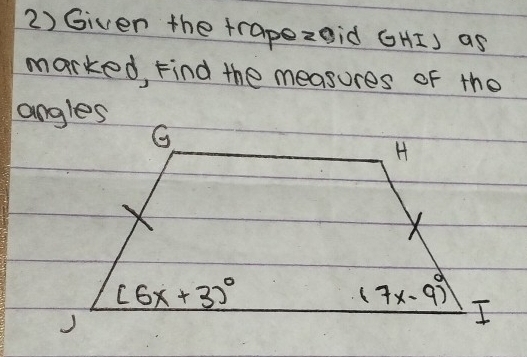 2) Given the trapezoid GHIJ as
marked, Find the measures of the
angles
G
H
(6x + 3)°
(7x - 9)°
J
I